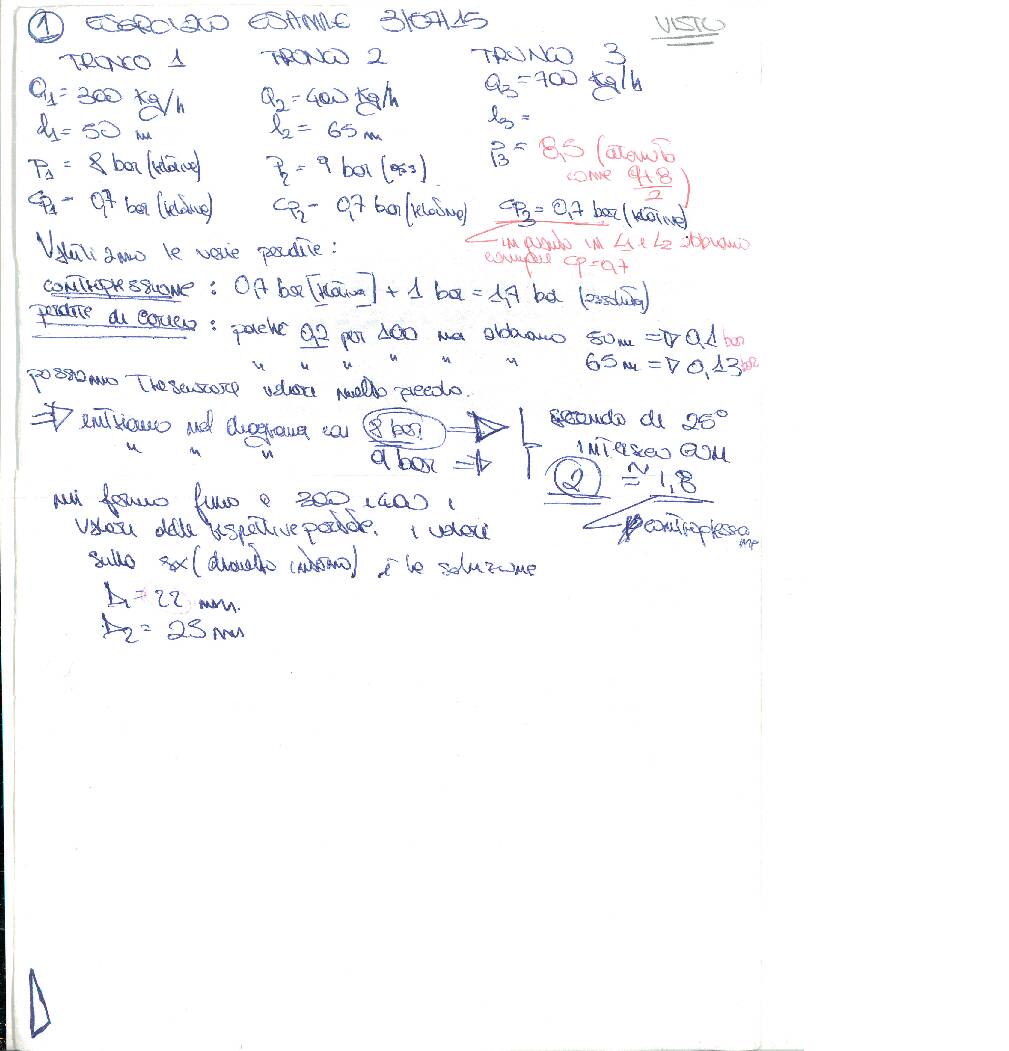 1 ESERCIZIO ESAME 3/07/15 VISTO
TRONCO 1 TRONCO 2 TRONCO 3
Q1 = 300 Kg/h Q2 = 400 Kg/h Q3 = 700 Kg/h
l1 = 50 m l2 = 65 m l3 =
P1 = 8 bar (relativa) P2 = 9 bar (ass) P3 = 8,5 (
come 9+8
2 )
CP1 - 0,7 bar (relativa) CP2 - 0,7 bar (relativa) CP3 = 0,7 bar (relativa)
in quanto in L1 e L2 abbiamo
sempre CP=0,7
Valutiamo le varie perdite:
contropressione : 0,7 bar [relativa] + 1 bar = 1,7 bar (assoluta)
perdite di carico : poiché 0,2 per 100 m abbiamo 50 m => 0,1 bar
" " " " " " 65 m => 0,13 bar
possiamo Trascurare valore molto piccolo.
=> entriamo nel diagramma con 8 bar => secondo di 25°
" " " 9 bar => interseco con
2 ≅ 1,8
mi fermo fino a 300 e 400 i
valori delle rispettive portate. i valori contropressione
sulla sx (diametro interno) è la soluzione
D1 = 22 mm.
D2 = 25 mm